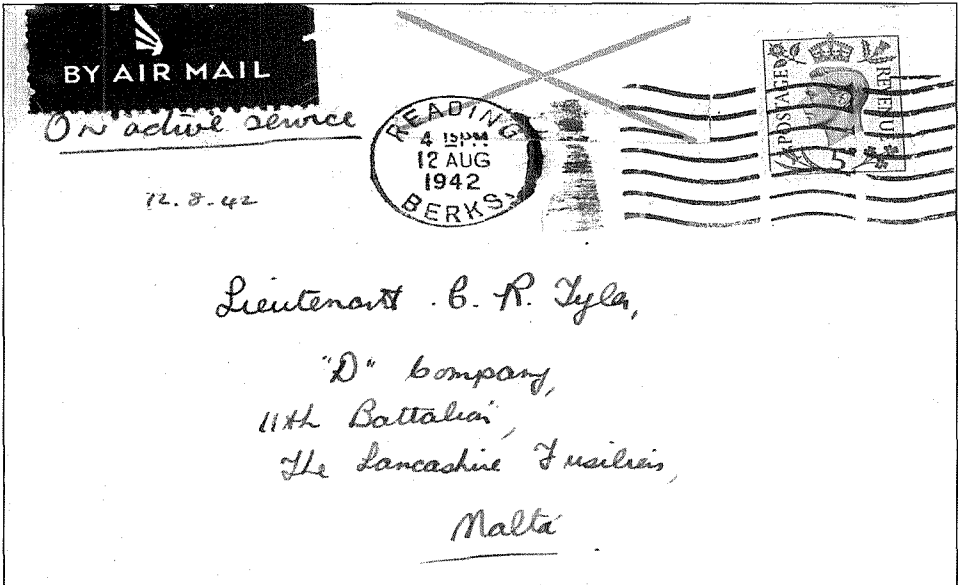 BY AIR MAIL
On active service
12.8.42
READING
4 15 PM
12 AUG
1942
BERKS.
POSTAGE REVENUE
5D
Lieutenant C. R. Tyler,
"D" Company,
11th Battalion,
The Lancashire Fusiliers,
Malta